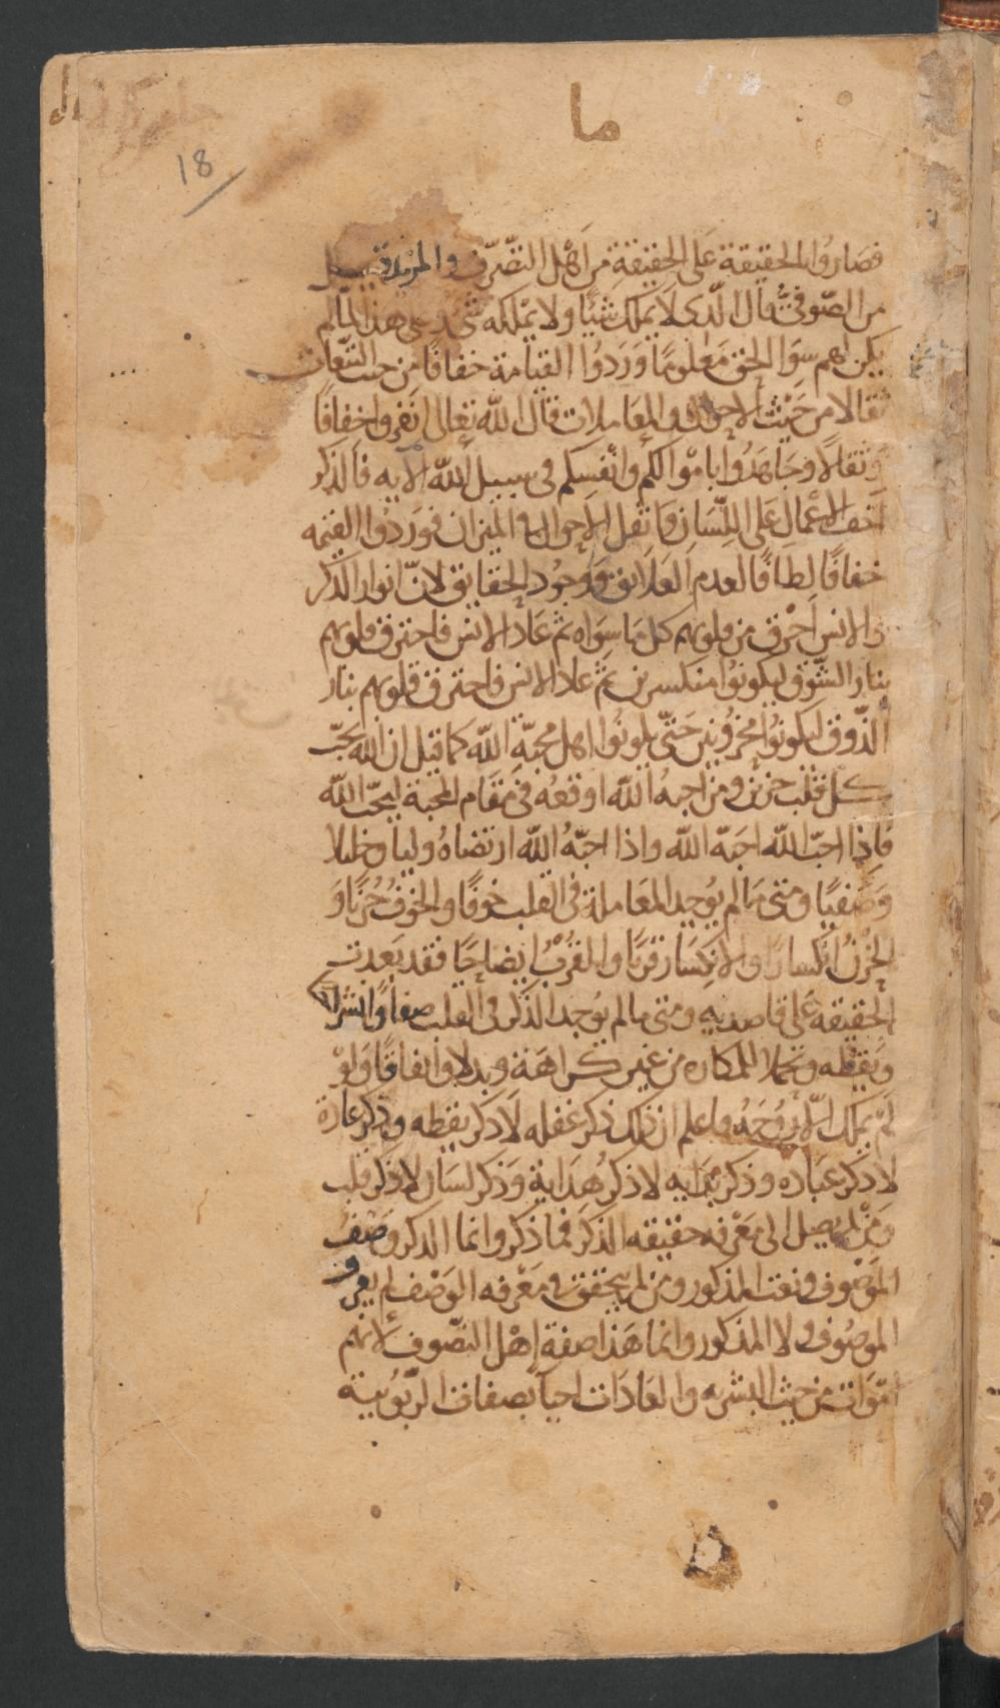 ما
18
فصاروا بالحقيقة على الحقيقة من اهل التصرف
من الصوفي قال الذى لا يملك شيئا ولا يملكه شئ على هذا لما لم
يكن لهم سوا الحق معلوما وردوا القيامة خفافا من حيث
ثقالا من حيث الاحوال والمعاملات قال الله تعالى انفروا خفافا
وثقالا وجاهدوا باموالكم وانفسكم في سبيل الله الآيه فالذكر
اخف الاعمال على اللسان واثقل الاحوال في الميزان فوردوا القيمه
خفافا لطافا لعدم العلايق ووجود الحقايق لان انوار الذكر
والانس احرق من قلوبهم كل ما سواه ثم عاد الانس فاحترق قلوبهم
بنار الشوق ليكونوا منكسرين ثم عاد الانس فاحترق قلوبهم بنار
الذوق ليكونوا محزونين حتى يكونوا اهل محبة الله كما قيل ان الله يحب
كل قلب حزين ومن احبه الله اوقعه في مقام المحبة ليحب الله
فاذا احب الله احبه الله واذا احبه الله ارتضاه وليا وخليلا
وصفيا ومتى ما لم يوجد المعاملة في القلب خوفا والخوف حزنا و
الحزن انكسارا والانكسار قربا والقرب ايضاحا فقد بعدت
الحقيقة على قاصديه ومتى ما لم يوجد الذكر في القلب صفا
ويقظه وتحملا المكاره من غير كراهة وبدلا وانفاقا ولو
لم يملك الا روحه فاعلم ان ذلك ذكر غفله لا ذكر يقظه وذكر عادة
لا ذكر عباده وذكر بدايه لا ذكر هداية وذكر لسان لا ذكر قلب
ومن لم يصل الى معرفه حقيقه الذكر فما ذكر وانما الذكر وصف
الموصوف ونعت المذكور ومن لم يتحقق في معرفه الوصف لم يعرف
الموصوف ولا المذكور وانما هذا صفة اهل التصوف لانهم
اموات من حيث البشريه والعادات احيا بصفات الربوبية